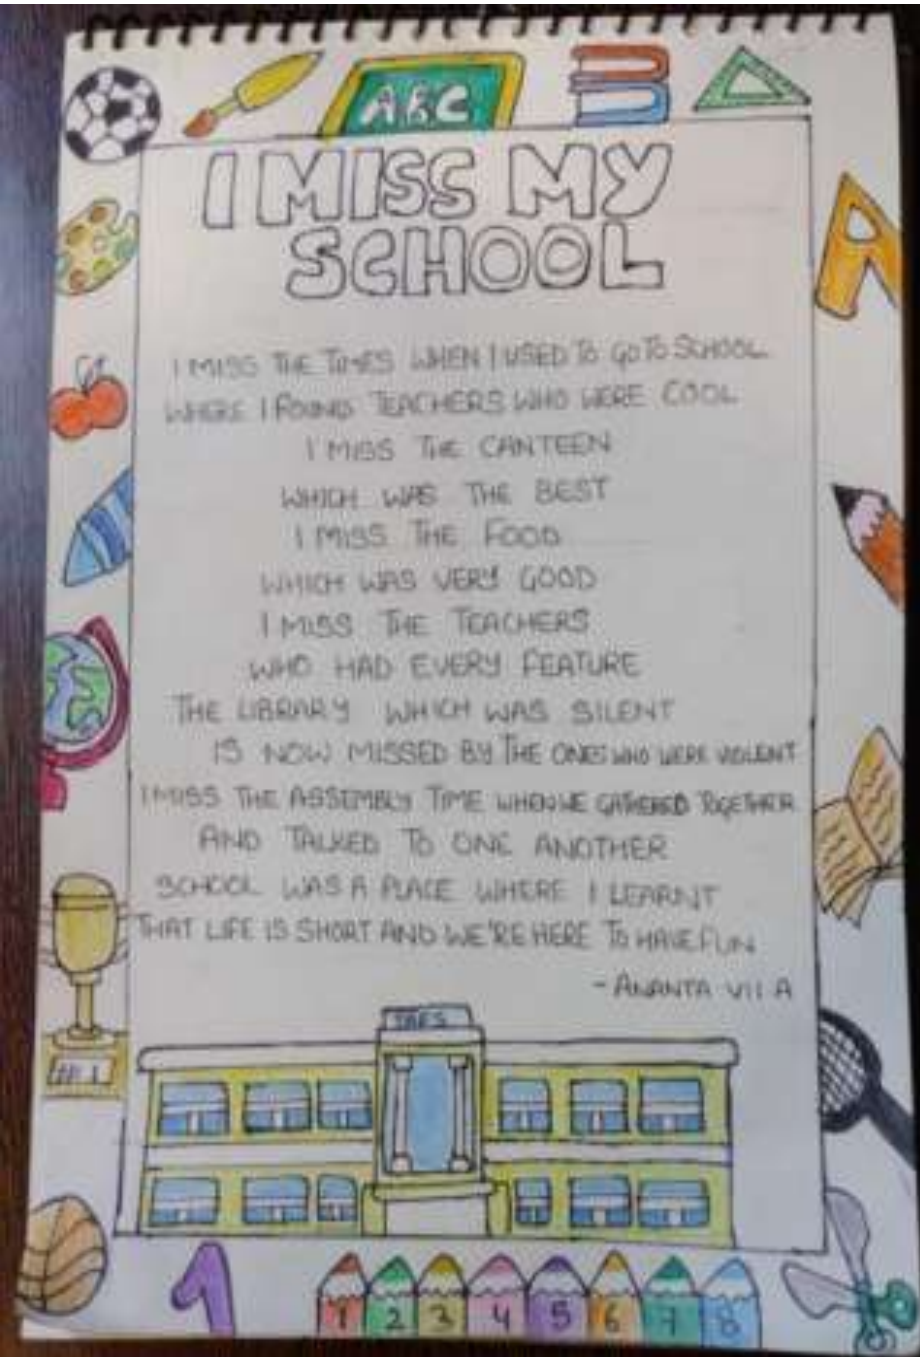 ABC
I MISS MY
SCHOOL
I MISS THE TIMES WHEN I USED TO GO TO SCHOOL
WHERE I FOUND TEACHERS WHO WERE COOL
I MISS THE CANTEEN
WHICH WAS THE BEST
I MISS THE FOOD
WHICH WAS VERY GOOD
I MISS THE TEACHERS
WHO HAD EVERY FEATURE
THE LIBRARY WHICH WAS SILENT
IS NOW MISSED BY THE ONES WHO WERE VIOLENT
I MISS THE ASSEMBLY TIME WHEN WE GATHERED TOGETHER
AND TALKED TO ONE ANOTHER
SCHOOL WAS A PLACE WHERE I LEARNT
THAT LIFE IS SHORT AND WE'RE HERE TO HAVE FUN
- ANANTA VII A
#1
1
1 2 3 4 5 6 7 8
A